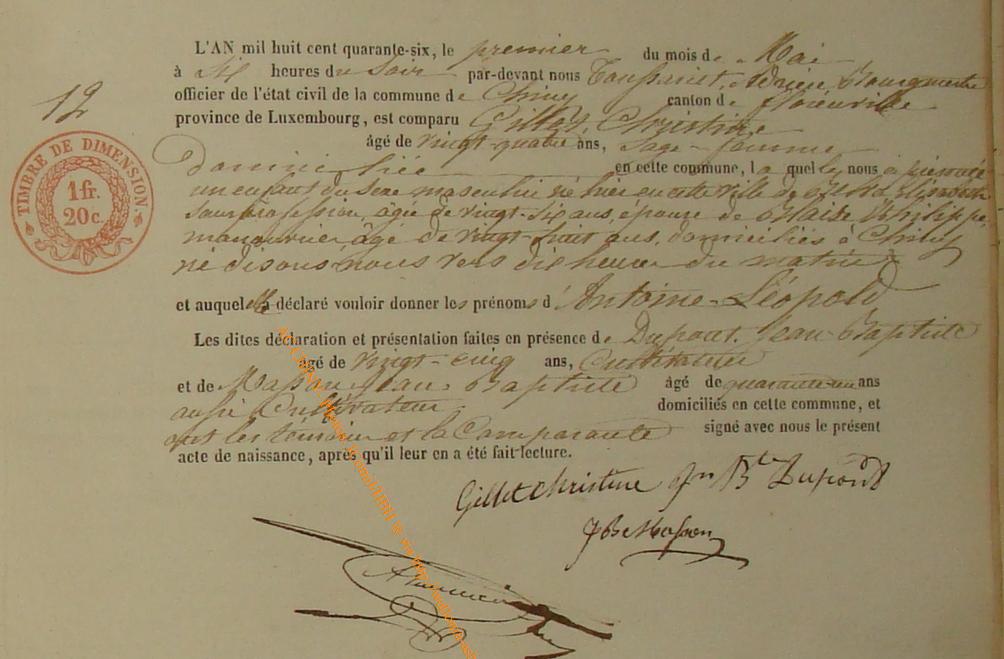 12
TIMBRE DE DIMENSION
1 fr.
20 c.
L'AN mil huit cent quarante-six, le premier du mois de Mai
à six heures du Soir par-devant nous Toussaint, Bourgmestre
officier de l'état civil de la commune de Chiny canton de florenville
province de Luxembourg, est comparu Gillet, Christine
âgé de vingt-quatre ans, Sage-femme
domiciliée en cette commune, la quelle nous a présenté
un enfant du Sexe masculin né hier en cette ville de
Sans profession, âgée de vingt-Six ans, épouse de Blaise Philippe
manouvrier, âgé de vingt-huit ans, domiciliés à Chiny
né disons nous vers dix heures du matin
et auquel elle a déclaré vouloir donner les prénoms d'Antoine-Léopold
Les dites déclaration et présentation faites en présence de Dupont, Jean-Baptiste
âgé de vingt-cinq ans, Cultivateur
et de Masson Jean-Baptiste âgé de quarante-un ans
aussi Cultivateur domiciliés en cette commune, et
ont les témoins et la Comparante signé avec nous le présent
acte de naissance, après qu'il leur en a été fait lecture.
Gillet Christine Jn Bte Dupont
JBe Masson